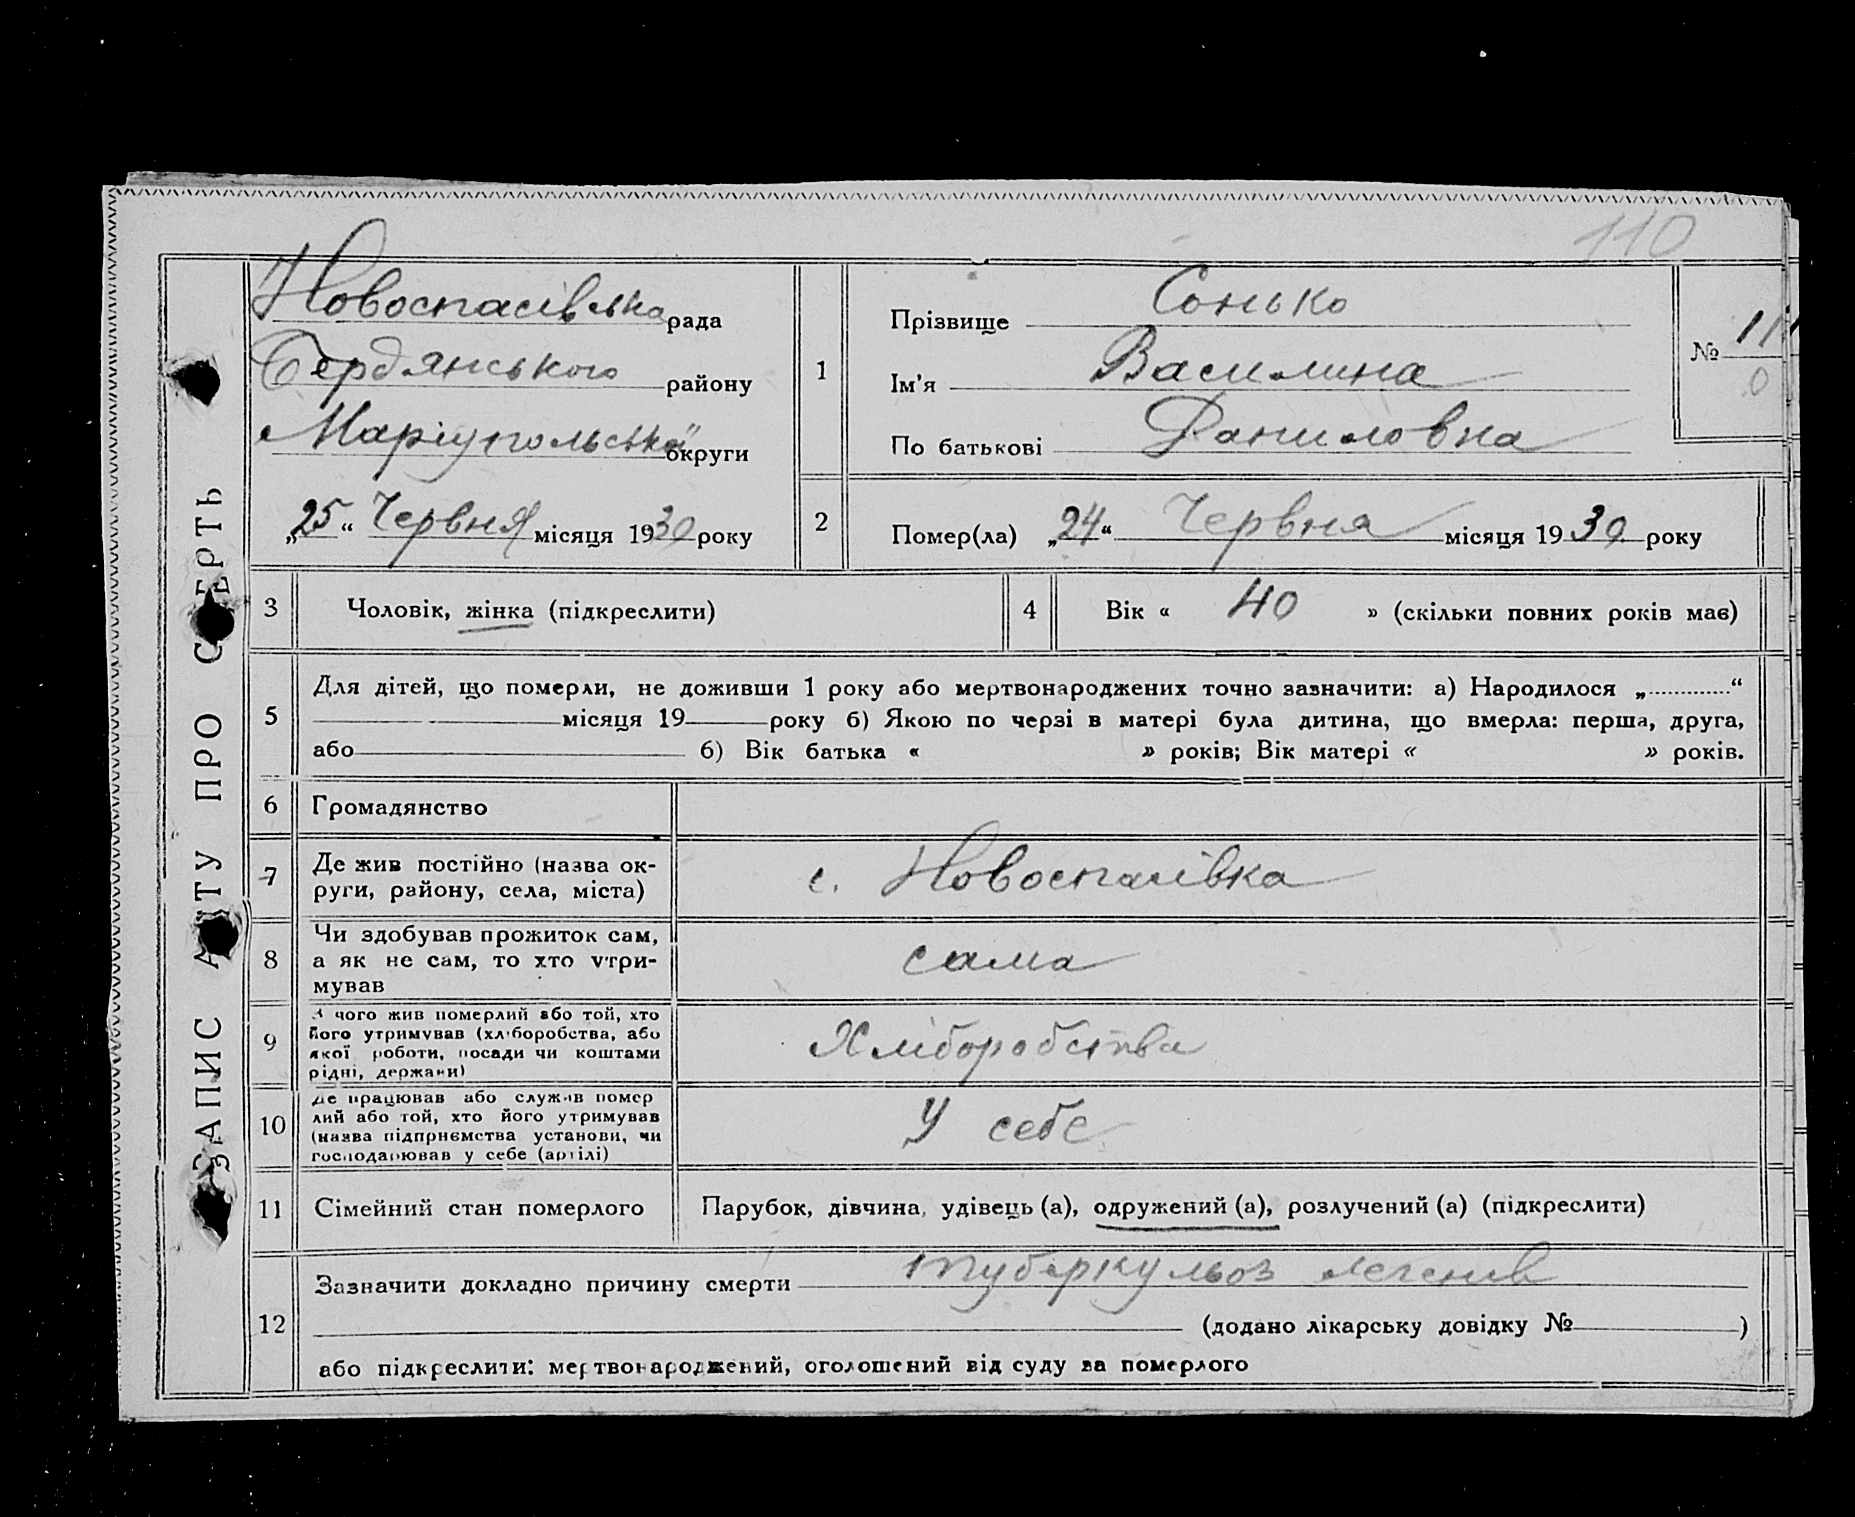 110
ЗАПИС АКТУ ПРО СМЕРТЬ
Новоспасівська рада
Бердянського району
Маріупольської округи
„25“ Червня місяця 1930 року
1
Прізвище Сонько
Ім'я Василина
По батькові Даниловна
№ 11
0
2
Помер(ла) „24“ Червня місяця 1930 року
3 Чоловік, жінка (підкреслити)
4 Вік « 40 » (скільки повних років має)
5
Для дітей, що померли, не доживши 1 року або мертвонароджених точно зазначити: а) Народилося „............“
місяця 19 року б) Якою по черзі в матері була дитина, що вмерла: перша, друга,
або б) Вік батька « » років; Вік матері « » років.
6 Громадянство
7
Де жив постійно (назва ок-
руги, району, села, міста)
с. Новоспасівка
8
Чи здобував прожиток сам,
а як не сам, то хто утри-
мував
сама
9
З чого жив померлий або той, хто
його утримував (хліборобства, або
якої роботи, посади чи коштами
рідні, держави)
Хліборобства
10
Де працював або служив помер
лий або той, хто його утримував
(назва підприємства установи, чи
господарював у себе (артілі)
У себе
11 Сімейний стан померлого
Парубок, дівчина, удівець (а), одружений (а), розлучений (а) (підкреслити)
12
Зазначити докладно причину смерти туберкульоз легенів
(додано лікарську довідку № )
або підкреслити: мертвонароджений, оголошений від суду за померлого